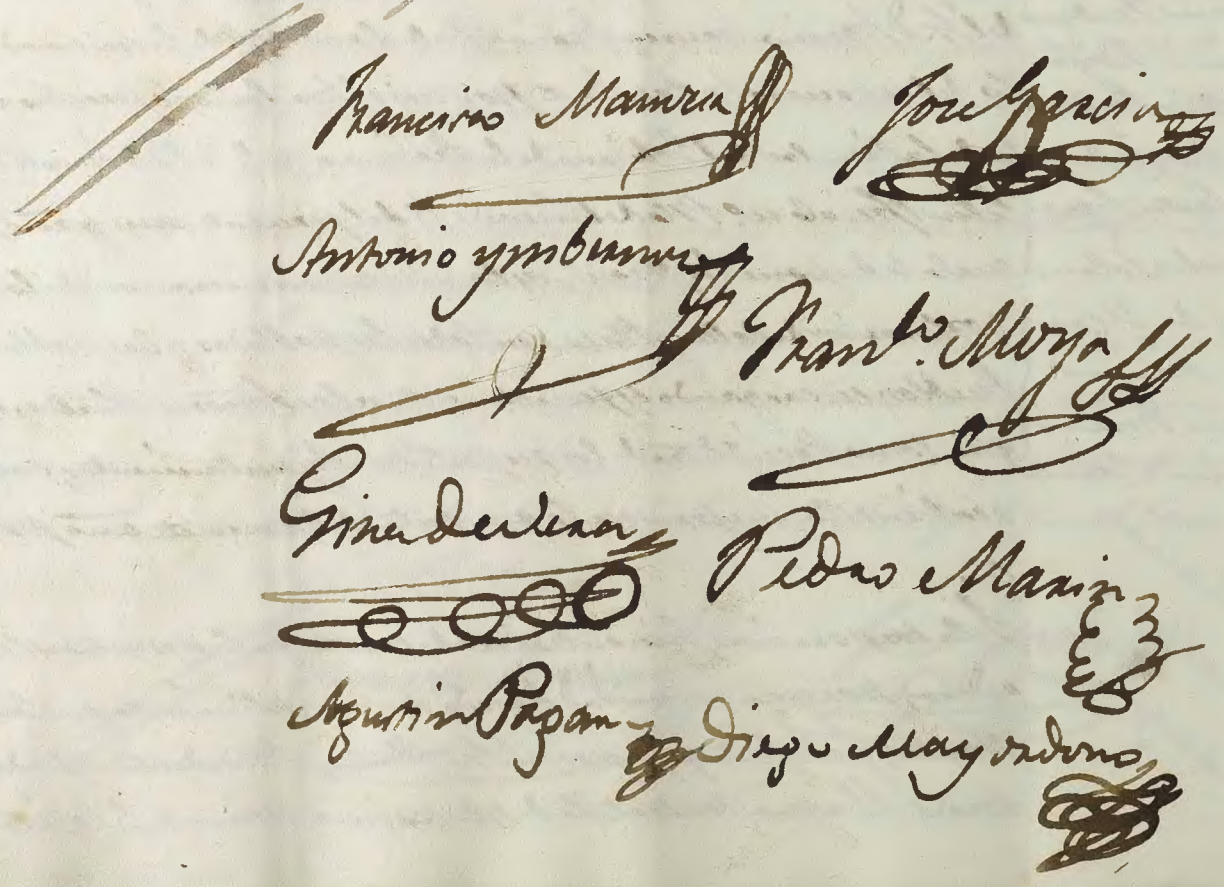 Francisco Jose Garcia
Antonio ymbernon
Fran.co Moya
Gines de Vera
Pedro Marin
Agustin Pagan Diego Mayordomo